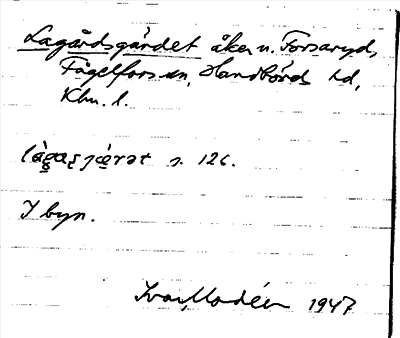 Lagårdsgärdet åker u. Forsaryd,
Fågelfors sn, Handbörds hd,
Klm. l.
s. 126.
I byn.
Ivar Modéer 1947